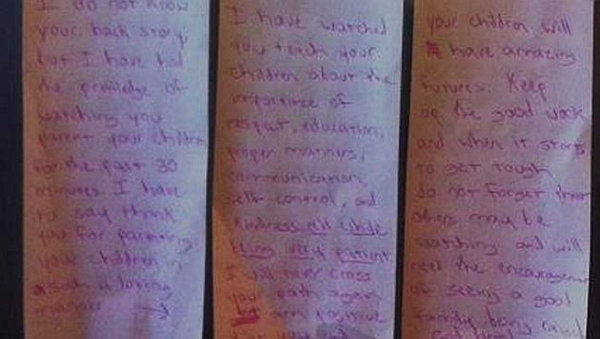 I do not know
your back story,
but I have had
the privilege of
watching you
parent your children
for the past 30
minutes. I have
to say thank
you for parenting
your children in
such a loving
manner →
I have watched
you teach your
children about the
importance of
respect, education,
proper manners,
communication,
self control, and
kindness all while
being very patient.
I will never cross
your path again
but am positive
that you and
your children will
have amazing
futures. Keep
up the good work
and when it starts
to get tough
do not forget
others may be
watching and will
need the encouragement
of seeing a good
family being raised.